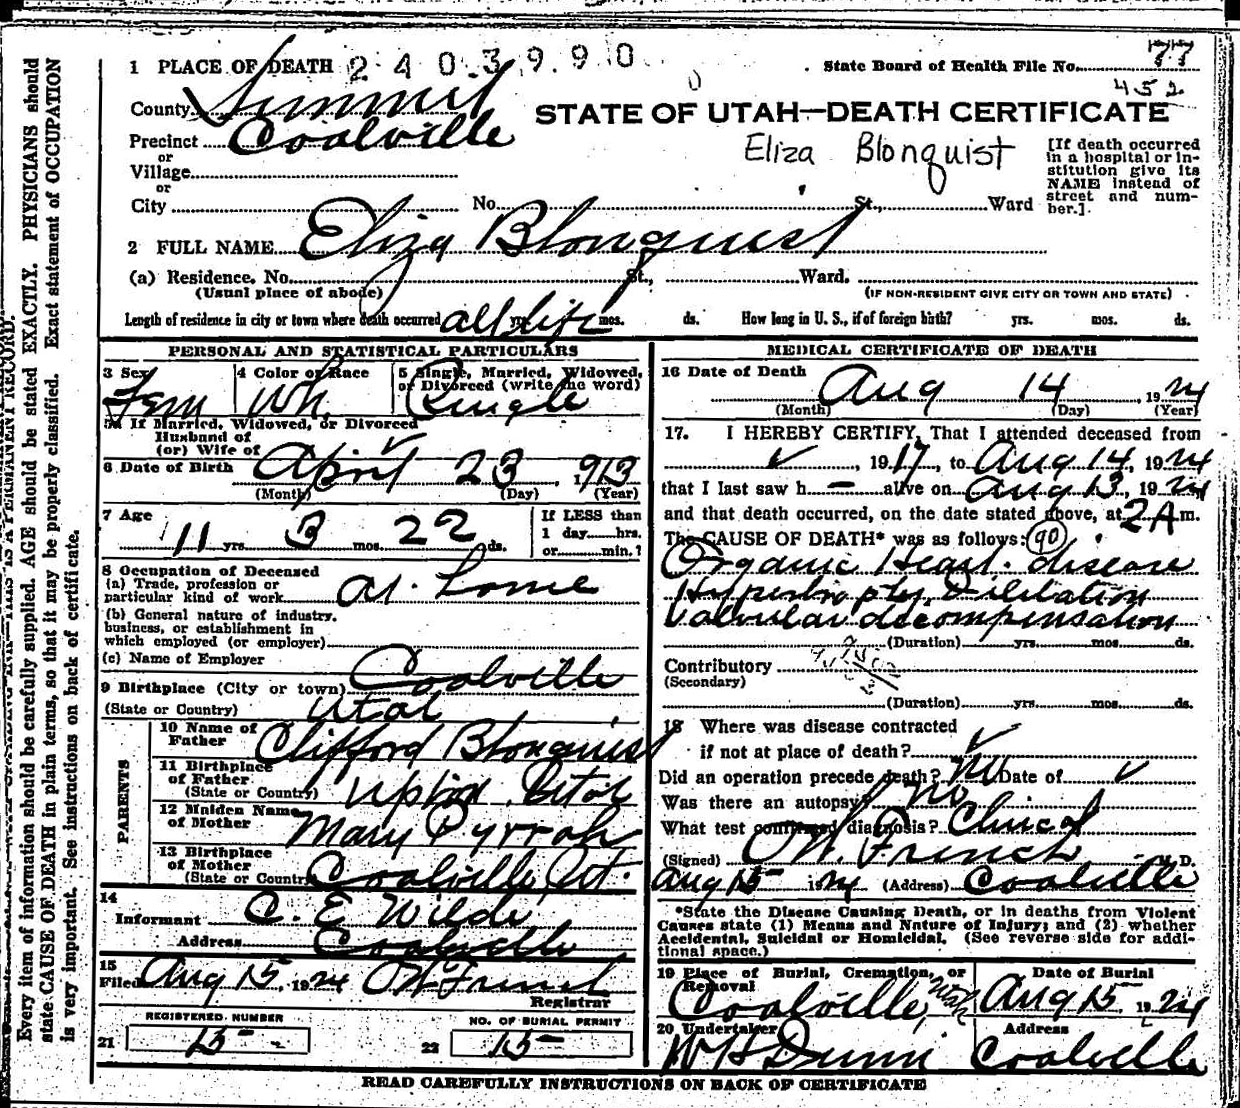 1 PLACE OF DEATH 2403990
State Board of Health File No. 77
452
County Summit
STATE OF UTAH—DEATH CERTIFICATE
Precinct Coalville
Eliza Blonquist
or
Village
or
City No. St., Ward
[If death occurred
in a hospital or in-
stitution give its
NAME instead of
street and num-
ber.].
2 FULL NAME Eliza Blonquist
(a) Residence, No. St., Ward.
(Usual place of abode)
(IF NON-RESIDENT GIVE CITY OR TOWN AND STATE)
Length of residence in city or town where death occurred all life yrs. mos. ds. How long in U. S., if of foreign birth? yrs. mos. ds.
PERSONAL AND STATISTICAL PARTICULARS
3 Sex
Fem
4 Color or Race
Wh.
5 Single, Married, Widowed,
or Divorced (write the word)
Single
5a If Married, Widowed, or Divorced
Husband of
(or) Wife of
6 Date of Birth April 23, 1913
(Month) (Day) (Year)
7 Age
11 yrs. 3 mos. 22 ds.
If LESS than
1 day hrs.
or min.?
8 Occupation of Deceased
(a) Trade, profession or
particular kind of work At Home
(b) General nature of industry,
business, or establishment in
which employed (or employer)
(c) Name of Employer
9 Birthplace (City or town) Coalville
(State or Country) Utah
PARENTS
10 Name of
Father Clifford Blonquist
11 Birthplace
of Father Upton Utah
(State or Country)
12 Maiden Name
of Mother Mary Pyrrah
13 Birthplace
of Mother
(State or Country) Coalville, Ut.
14
Informant C. E Wilde
Address Coalville
15
Filed Aug 15, 1924 OW French
Registrar
REGISTERED NUMBER
21 15
NO. OF BURIAL PERMIT
22 15
MEDICAL CERTIFICATE OF DEATH
16 Date of Death
Aug 14, 1924
(Month) (Day) (Year)
17. I HEREBY CERTIFY, That I attended deceased from
✓, 1917, to Aug 14, 1924
that I last saw h — alive on Aug 13, 1924
and that death occurred, on the date stated above, at 2 A m.
The CAUSE OF DEATH* was as follows: 90
Organic Heart disease
Hypertrophy Dilitation
Valvular decompensation
(Duration) yrs. mos. ds.
Contributory
(Secondary)
(Duration) yrs. mos. ds.
18 Where was disease contracted
if not at place of death? ✓
Did an operation precede death? No Date of ✓
Was there an autopsy? No
What test confirmed diagnosis? Clinical
(Signed) OW. French M. D.
Aug 15 1924 (Address) Coalville
*State the Disease Causing Death, or in deaths from Violent
Causes state (1) Means and Nature of Injury; and (2) whether
Accidental, Suicidal or Homicidal. (See reverse side for addi-
tional space.)
19 Place of Burial, Cremation, or
Removal
Coalville, Utah
Date of Burial
Aug 15 1924
20 Undertaker
W H Dunn
Address
Coalville
READ CAREFULLY INSTRUCTIONS ON BACK OF CERTIFICATE
Every item of information should be carefully supplied. AGE should be stated EXACTLY. PHYSICIANS should
state CAUSE OF DEATH in plain terms, so that it may be properly classified. Exact statement of OCCUPATION
is very important. See instructions on back of certificate.